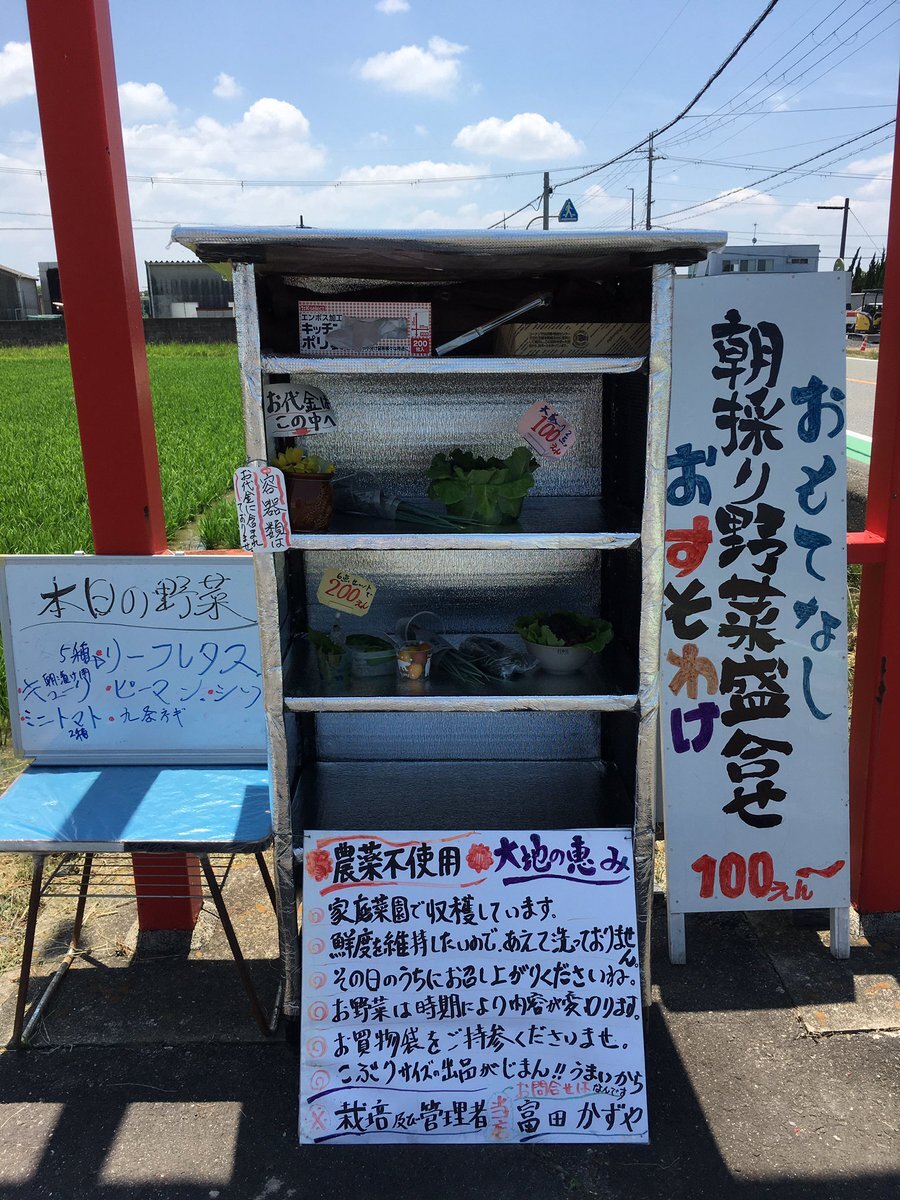 エンボス加工
キッチン
ポリ
200
お代金は
この中へ
100えん
容器類は
お代金に含まれておりません
6点セットで
200えん
本日の野菜
5種 リーフレタス
キューリ・ピーマン・シソ
ミニトマト・九条ネギ
2箱
おもてなし
朝採り野菜盛合せ
おすそわけ
100えん〜
農薬不使用 大地の恵み
家庭菜園で収穫しています。
鮮度を維持したいので、あえて洗っておりません。
その日のうちにお召し上がりくださいね。
お野菜は時期により内容が変わります。
お買物袋をご持参くださいませ。
こぶりサイズの出品がじまん!!うまいから
なんです
お問合せは
栽培及び管理者 富田かずや